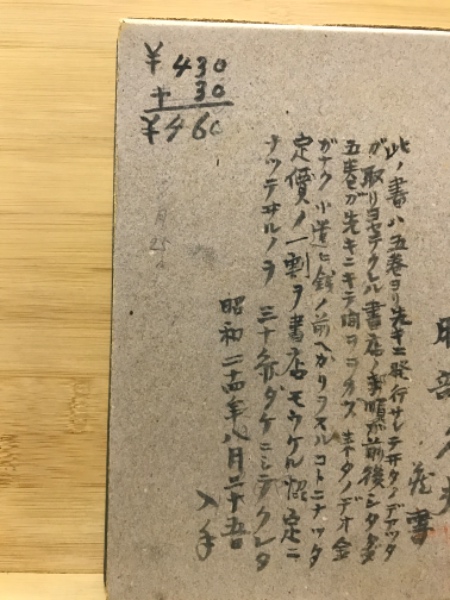 蔵書
此ノ書ハ五巻ヨリ先キニ発行サレテ井タノデアッタ
ガ取リヨセテクレル書店ノ手順ガ前後シタタメ
五巻ガ先キニキテ間ヲ 来タノデオ金
ガナク小遣ヒ銭ノ前ヘカリヲスルコトニナッタ
定價ノ一割ヲ書店モウケル勘定ニ
ナッテヰルノヲ 三十 ダケニシテクレタ
昭和二十四年八月二十五
入手
¥430
+ 30
¥460